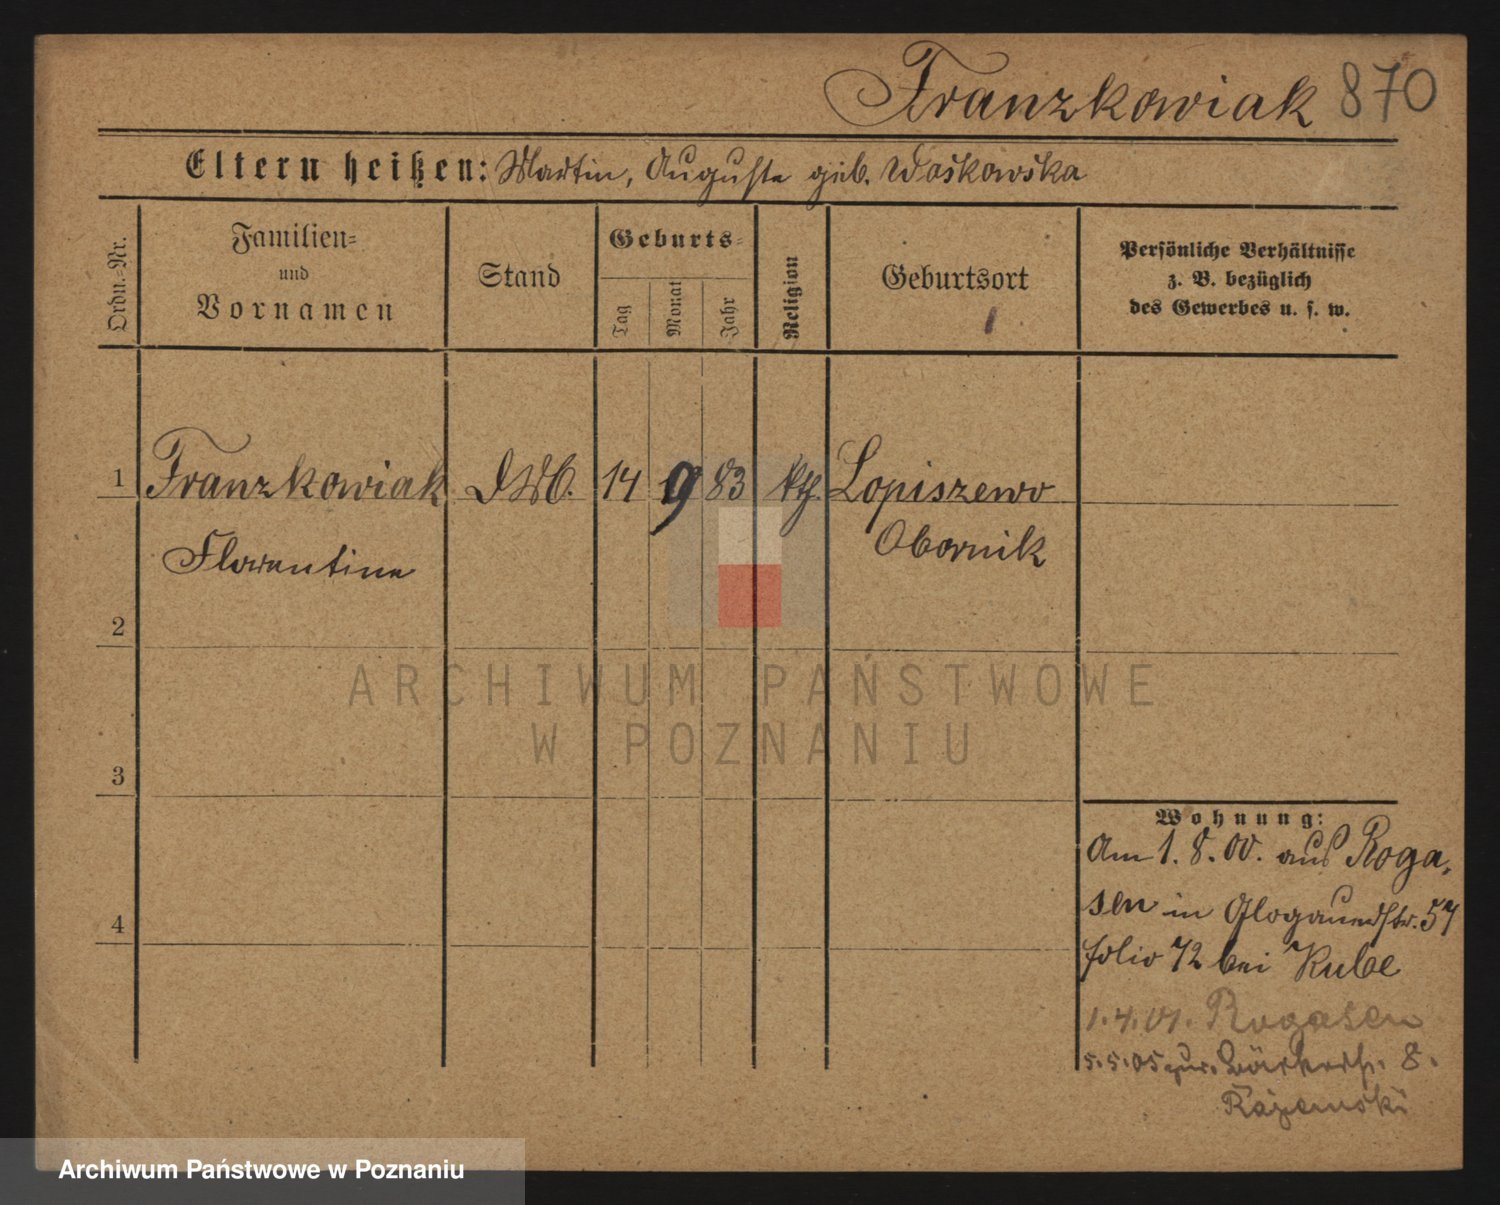 Franzkowiak 870
Eltern heißen: Martin, Auguste geb. Woskowska
Ordn.-Nr.
Familien-
und
Vornamen
Stand
Geburts-
Tag
Monat
Jahr
Religion
Geburtsort
Persönliche Verhältnisse
z. B. bezüglich
des Gewerbes u. s. w.
1 Franzkowiak 14 9 83 kth. Lopiszewo
Florentine Obornik
2
3
4
Wohnung:
Am 1. 8. 00. aus Roga-
sen in Glogauerstr. 57
folio 72 bei Kube
1.4.01. Rogasen
5.5.05 zur. Bäckerstr. 8.
ARCHIWUM PAŃSTWOWE
W POZNANIU
Archiwum Państwowe w Poznaniu